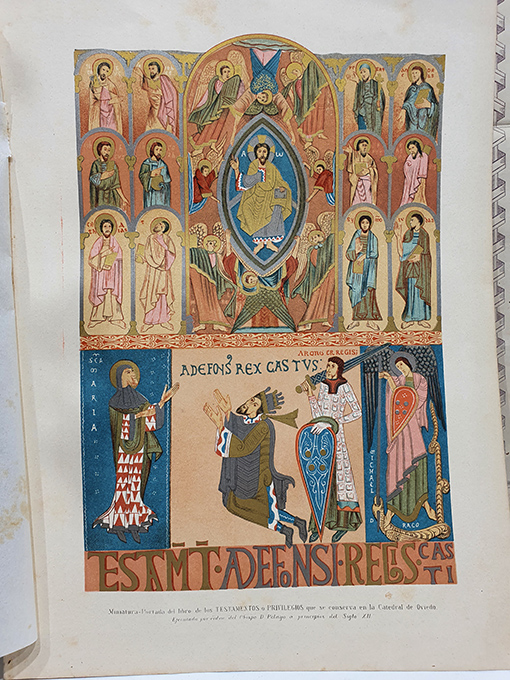 A ω
ARORO EREGIS:
ADEFONS REX CASTVS:
SCA
MARIA
MICHAEL
DRACO
TESTAMT · ADEFONSI · REGIS · CAS
TI
Miniatura-Portada del libro de los TESTAMENTOS o PRIVILEGIOS que se conserva en la Catedral de Oviedo.
Ejecutado por orden del Obispo D. Pelayo a principios del Siglo XII